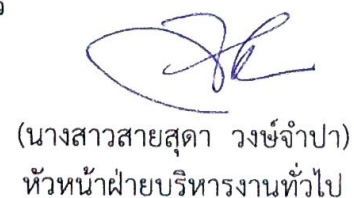 (นางสาวสายสุดา วงษ์จำปา)
หัวหน้าฝ่ายบริหารงานทั่วไป